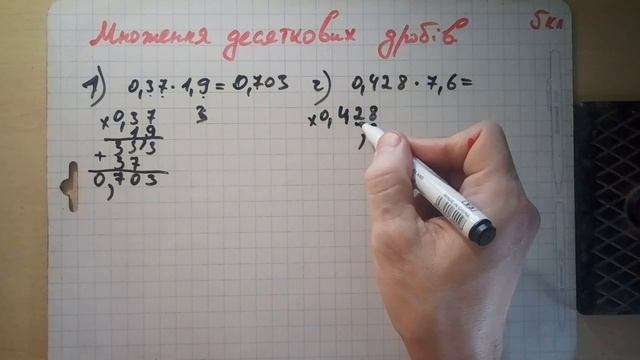 Множення десяткових дробів
5 кл
1) 0,37 · 1,9 = 0,703
× 0,37 3
1,9
333
+ 37
0,703
2) 0,428 · 7,6 =
× 0,428